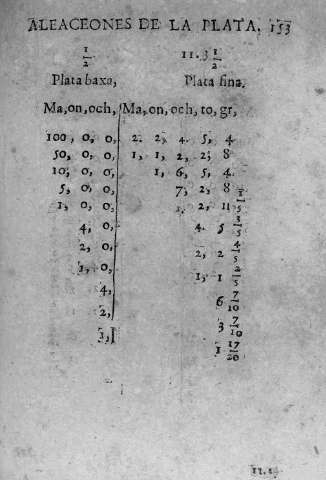 ALEACEONES DE LA PLATA. 153
1/2 11. 3 1/2
Plata baxa, Plata fina,
Ma, on, och, Ma, on, och, to, gr,
100, 0, 0, 2. 2, 4. 5, 4.
50, 0, 0, 1, 1, 2, 2; 8
10, 0, 0, 1, 6, 5, 4.
5, 0, 0, 7, 2, 8 1/5
1, 0, 0, 1, 2, 11 3/5
4, 0, 4. 5 4/5
2, 0, 2, 2 2/5
1, 0, 1, 1 7/10
4, 6 7/10
2, 3 17/20
1, 1